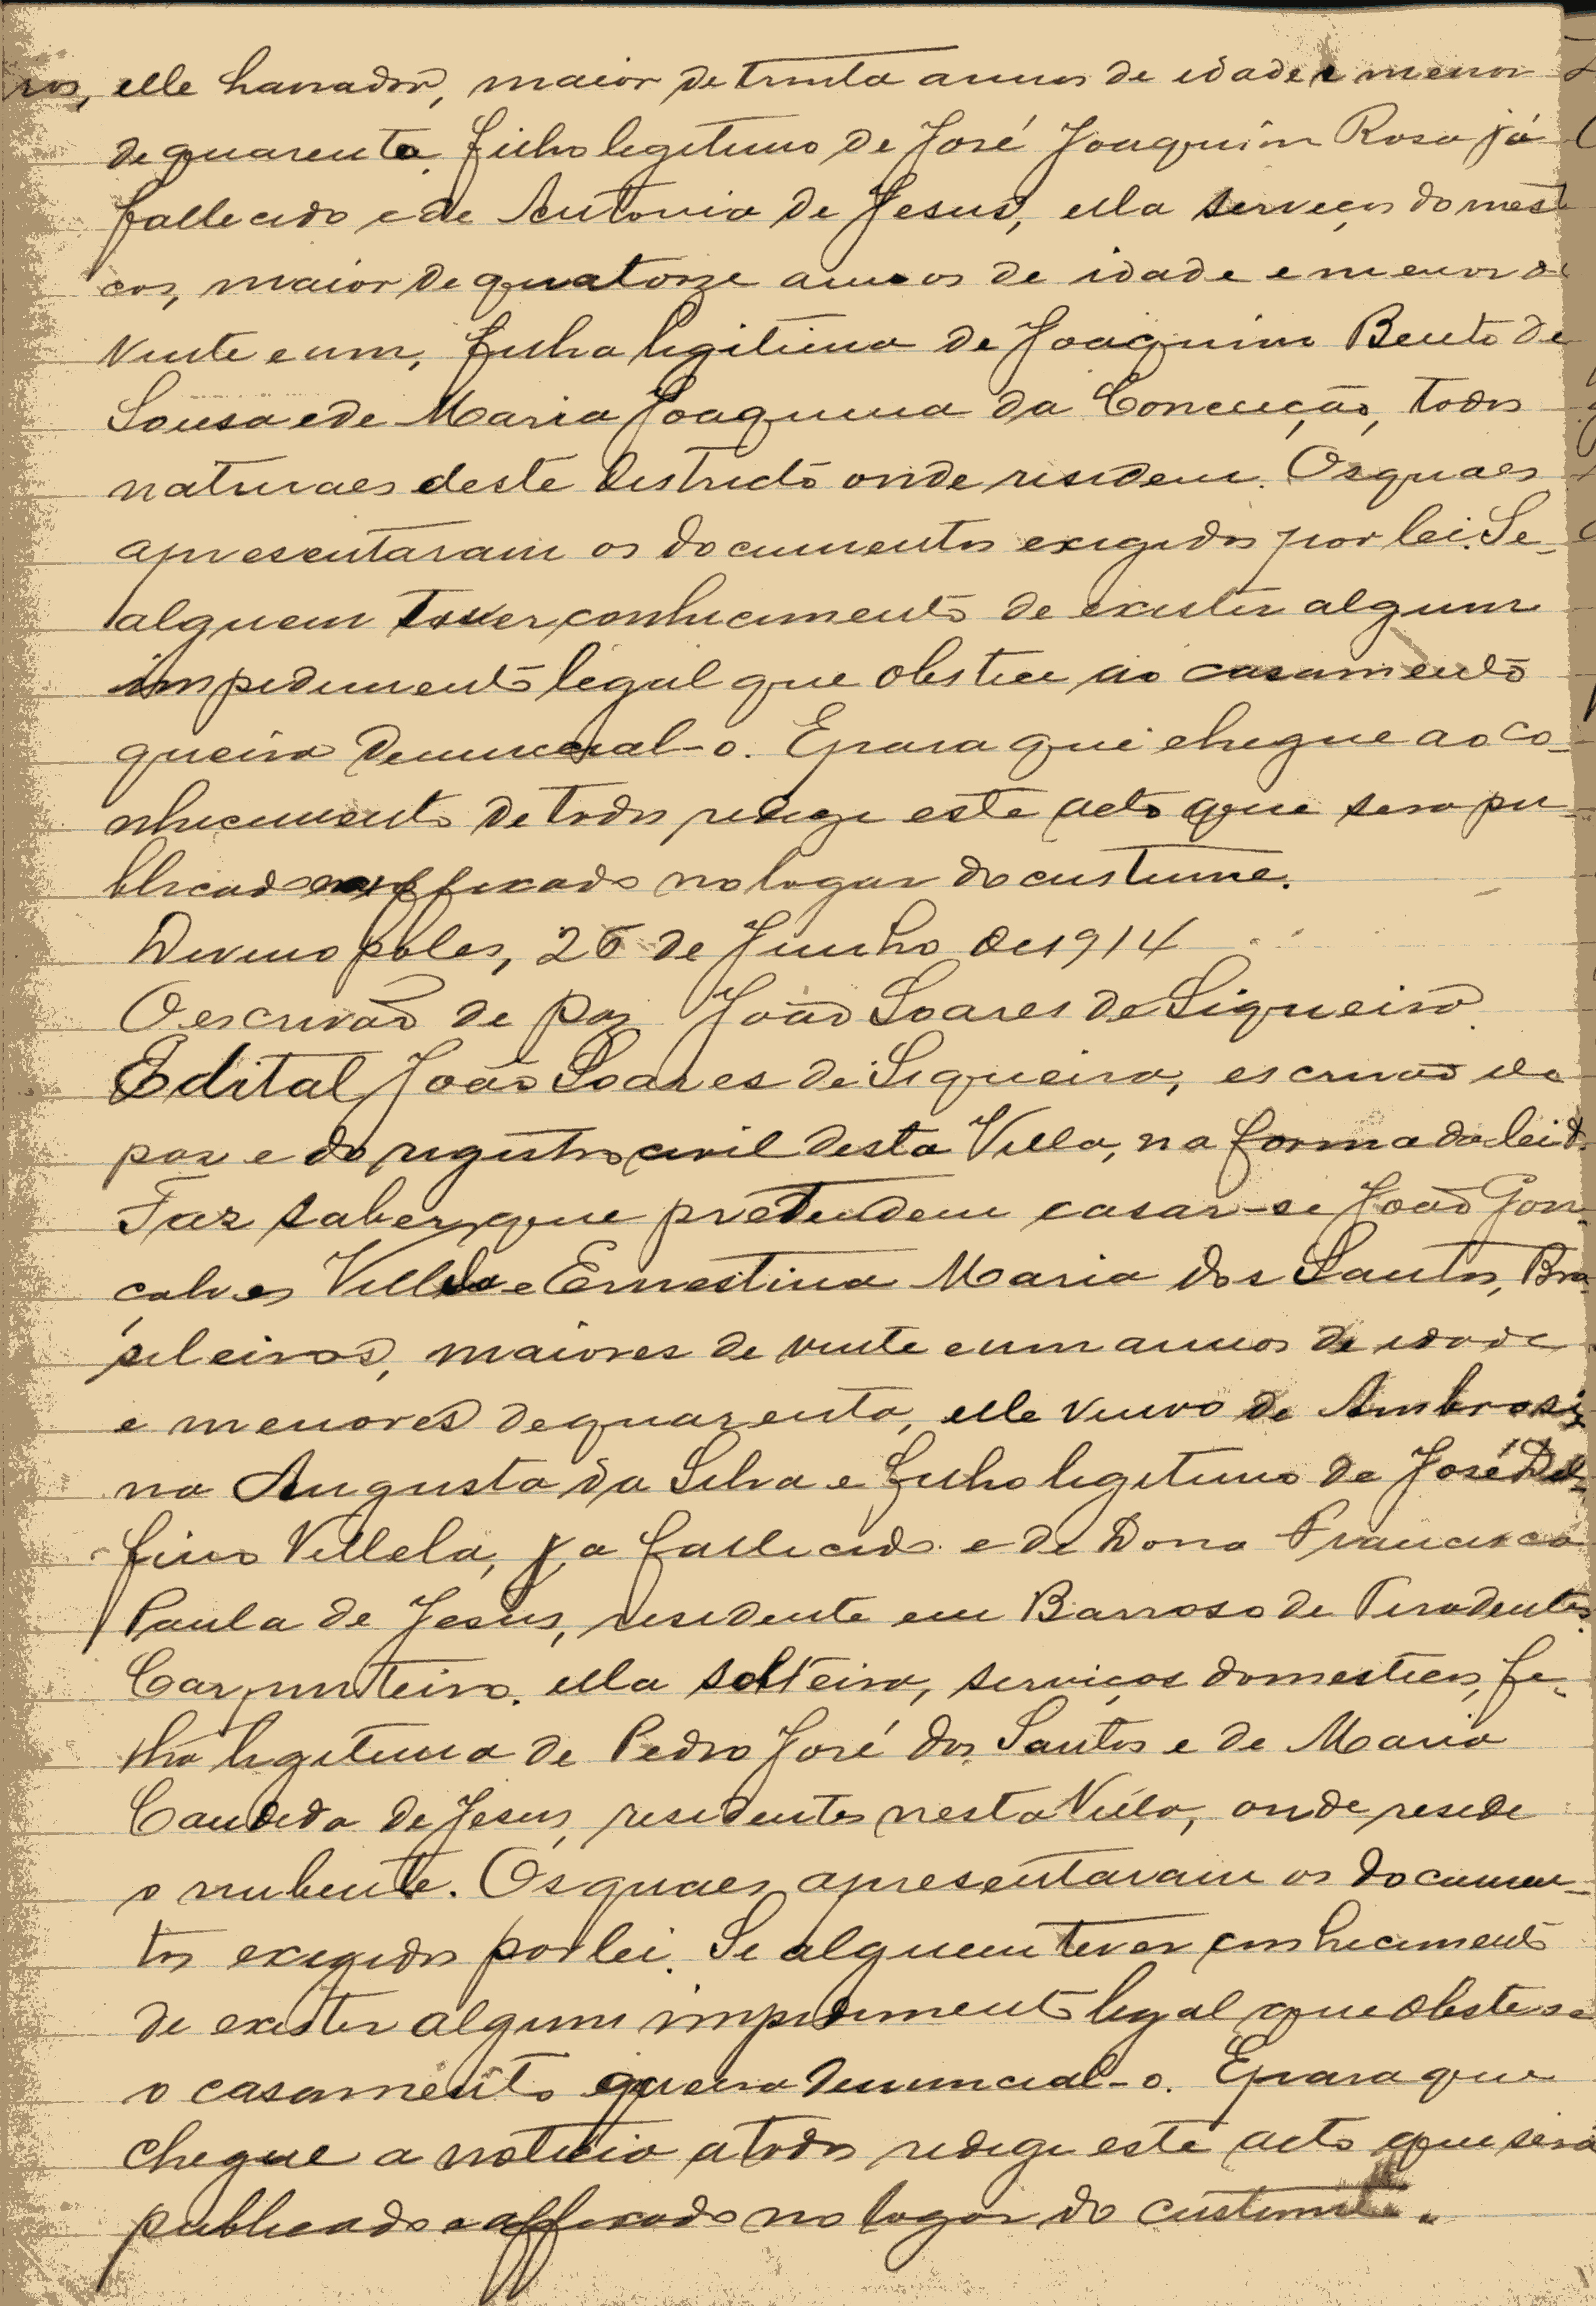 ros, elle lavrador, maior de trinta annos de idade e menor
de quarenta, filho legitimo de José Joaquim Rosa já
fallecido e de Antonia de Jesus, ella serviços domesti
cos, maior de quatorze annos de idade e menor de
vinte e um, filha legitima de Joaquim Bento de
Sousa e de Maria Joaquina da Conceição, todos
naturaes deste districto onde residem. Os quaes
apresentaram os documentos exigidos por lei. Se
alguem tiver conhecimento de existir algum
impedimento legal que obste ao casamento
queira denuncial-o. E para que chegue ao co-
nhecimento de todos redige este acto que será pu-
blicado e affixado no logar do custume.
Divinopoles, 26 de Junho de 1914
O escrivão de paz João Soares de Siqueira
Edital João Soares de Siqueira, escrivão de
paz e do registro civil desta Villa, na forma da lei &
Faz saber que pretendem casar-se João Gon-
çalves Villela e Ernestina Maria dos Santos, Bra-
sileiros, maiores de vinte e um annos de idade
e menores de quarenta, elle viuvo de Ambrosi
na Augusta da Silva e filho legitimo de José Del-
fino Villela, já fallecido e de Dona Francisca
Paula de Jesus, residente em Barroso de Tiradentes.
Carpinteiro, ella solteira, serviços domesticos, fi-
lha legitima de Pedro José dos Santos e de Maria
Candida de Jesus, residentes nesta Villa, onde reside
o nubente. Os quaes apresentaram os documen-
tos exigidos por lei. Se alguem tiver conhecimento
de existir algum impedimento legal que obste a
o casamento queira denuncial-o. E para que
chegue a noticia a todos redige este acto que será
publicado e affixado no logar do custume.